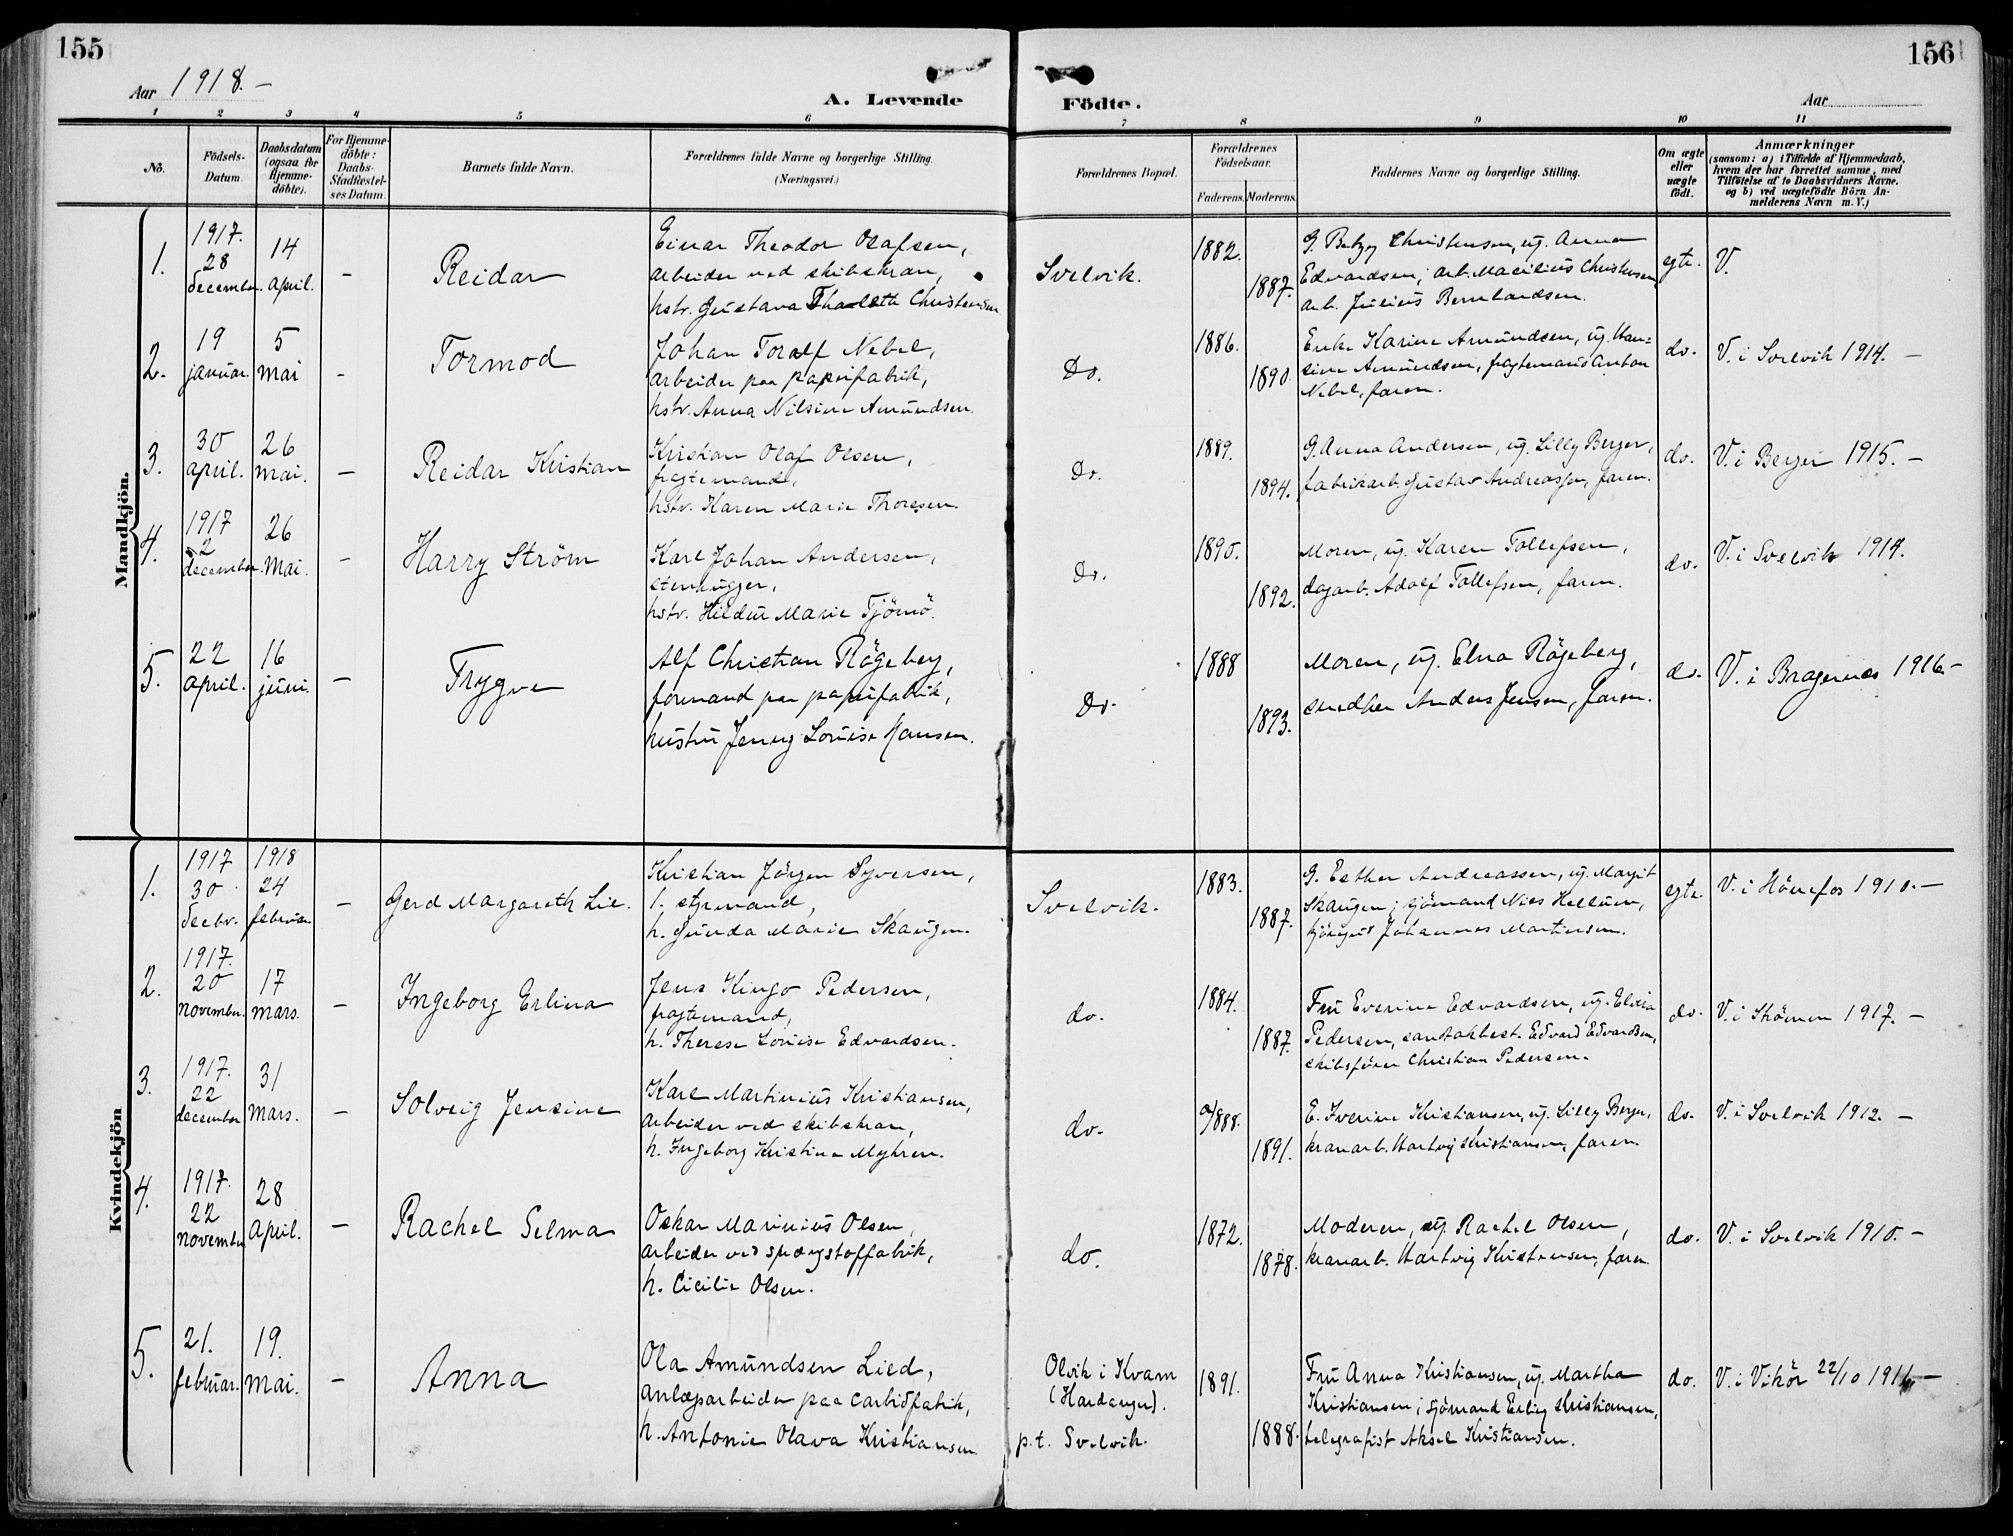 155
156
Aar 1918.-
A. Levende
Födte.
Aar
1 2 3 4 5 6 7 8 9 10 11
No.
Födsels-
Datum.
Daabsdatum
(ogsaa for
Hjemme-
döbte).
For Hjemme-
döbte:
Daabs-
Stadfæstel-
ses Datum.
Barnets fulde Navn.
Forældrenes fulde Navne og borgerlige Stilling.
(Næringsvei.)
Forældrenes Bopæl.
Forældrenes
Födselsaar.
Faderens. Moderens.
Faddernes Navne og borgerlige Stilling.
Om ægte
eller
uægte
födt.
Anmærkninger
(saasom: a) i Tilfælde af Hjemmedaab,
hvem der har forrettet samme, med
Tilföielse af to Daabsvidners Navne,
og b) ved uægtefödte Börn An-
melderens Navn m. V.)
Mandkjön.
1.
1917.
28
december.
14
april.
-
Reidar
Einar Theodor Olafsen,
arbeider ved skibskran,
hstr. Gustava Christensen
Svelvik.
1882.
1887.
G. Betzy Christensen, ug. Anna
Edvardsen, arb. Christensen
arb. Julius Bernhardsen.
egte.
V.
2.
19
januar.
5
mai
-
Tormod
Johan Toralf Nebel,
arbeider paa papirfabrik,
hstr. Anna Nilsine Amundsen.
Do.
1886.
1890.
Enke Karine Amundsen, ug. Han-
sine Amundsen, fragtemand Anton
Nebel, faren.
do.
V. i Svelvik 1914. -
3.
30
april.
26
mai.
-
Reidar Kristian
Kristian Olaf Olsen,
fragtemand,
hstr. Karen Marie Thoresen.
Do.
1889.
1894.
G. Anna Andersen, ug. Lilly Berger,
fabrikarb. Gustav Andreassen, faren.
do.
V. i Berger 1915. -
4.
1917
2
december.
26
Mai.
-
Harry Ström
Karl Johan Andersen,
stenhugger,
hstr. Hildur Marie Tjömö.
Do.
1890.
1892.
Moren, ug. Karen Tollefsen,
dagarb. Adolf Tollefsen, faren.
do.
V. i Svelvik 1914.
5.
22
april.
16
juni.
-
Trygve
Alf Christian Rögeberg,
formand paa papirfabrik,
hustru Jenny Louise Hansen.
Do.
1888
1893.
Moren, ug. Elna Rögeberg,
snedker Anders Jensen, faren.
do.
V. i Bragernes 1916.-
Kvindekjön
1.
1917
30
decbr.
1918
24
februar
-
Gerd Margareth Lie.
Kristian Jörgen Syversen,
1. styrmand,
h. Gunda Marie Skaugen.
Svelvik.
1883.
1887.
G. Esther Andreassen, ug. Margit
Skaugen, sjömand Nils Hellum,
Johannes Martinsen.
egte.
V. i Hönefos 1910. -
2.
1917.
20
november.
17
mars.
-
Ingeborg Erlina
Jens Kingo Pedersen,
fragtemand,
h. Therese Louise Edvardsen.
do.
1884.
1887.
Fru Everine Edvardsen, ug. Elvira
Pedersen, Edvard Edvardsen,
skibsförer Christian Pedersen.
do.
V. i Skömen 1917. -
3.
1917.
22
december
31
mars.
-
Solveig Jensine
Karl Martinius Kristiansen,
arbeider ved skibskran,
h. Ingeborg Kristine Myhren.
do.
1888.
1891.
E. Iverine Kristiansen, ug. Lilly Berger,
kranarb. Hartvig Kristiansen, faren
do.
V. i Svelvik 1912. -
4.
1917.
22
november
28
April.
-
Rachel Selma
Oskar Marinius Olsen,
arbeider ved sprængstoffabrik,
h. Cicilie Olsen.
do.
1872.
1878.
Moderen, ug. Rachel Olsen,
kranarb. Hartvig Kristiansen, faren.
do.
V. i Svelvik 1910. -
5.
21.
februar.
19.
mai.
-
Anna
Ola Amundsen Lied,
anlægsarbeider paa carbidfabrik,
h. Antonie Olava Kristiansen
Olvik i Kvam
(Hardanger).
p.t. Svelvik.
1891.
1888.
Fru Anna Kristiansen, ug. Martha
Kristiansen, sjömand Erling Kristiansen,
telegrafist Aksel Kristiansen.
do.
V. i Vikör 22/10 1911. -